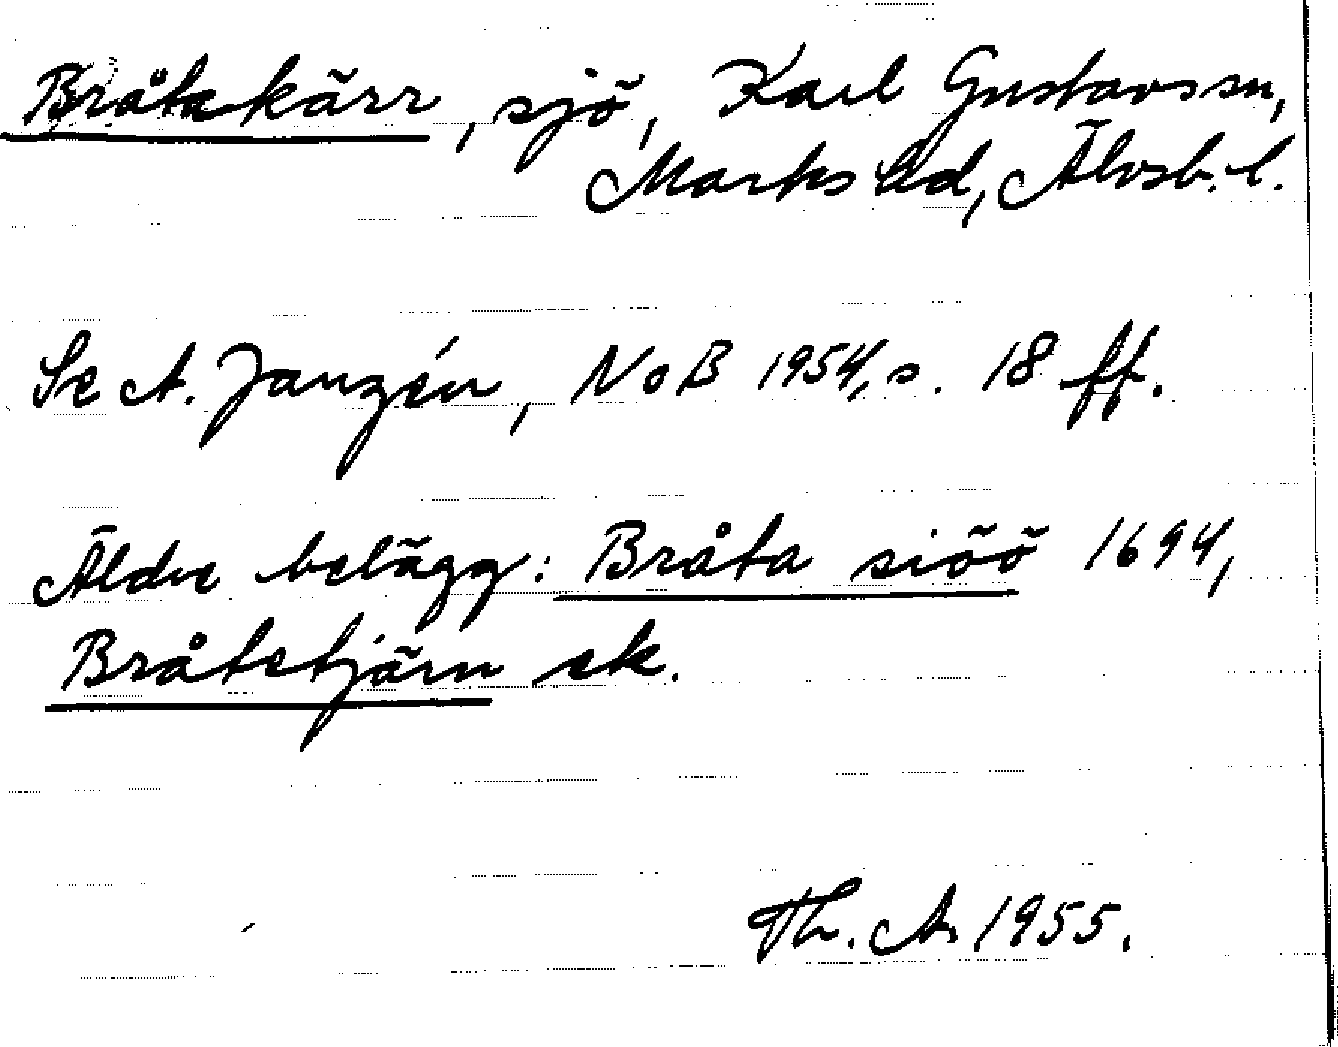 Bråtakärr, sjö, Karl Gustavs sn,
Marks hd, Älvsb. l.
Se A. Janzén, NoB 1954, s. 18 ff.
Äldre belägg: Bråta siöö 1694,
Bråtetjärn ek.
Th. A. 1955.